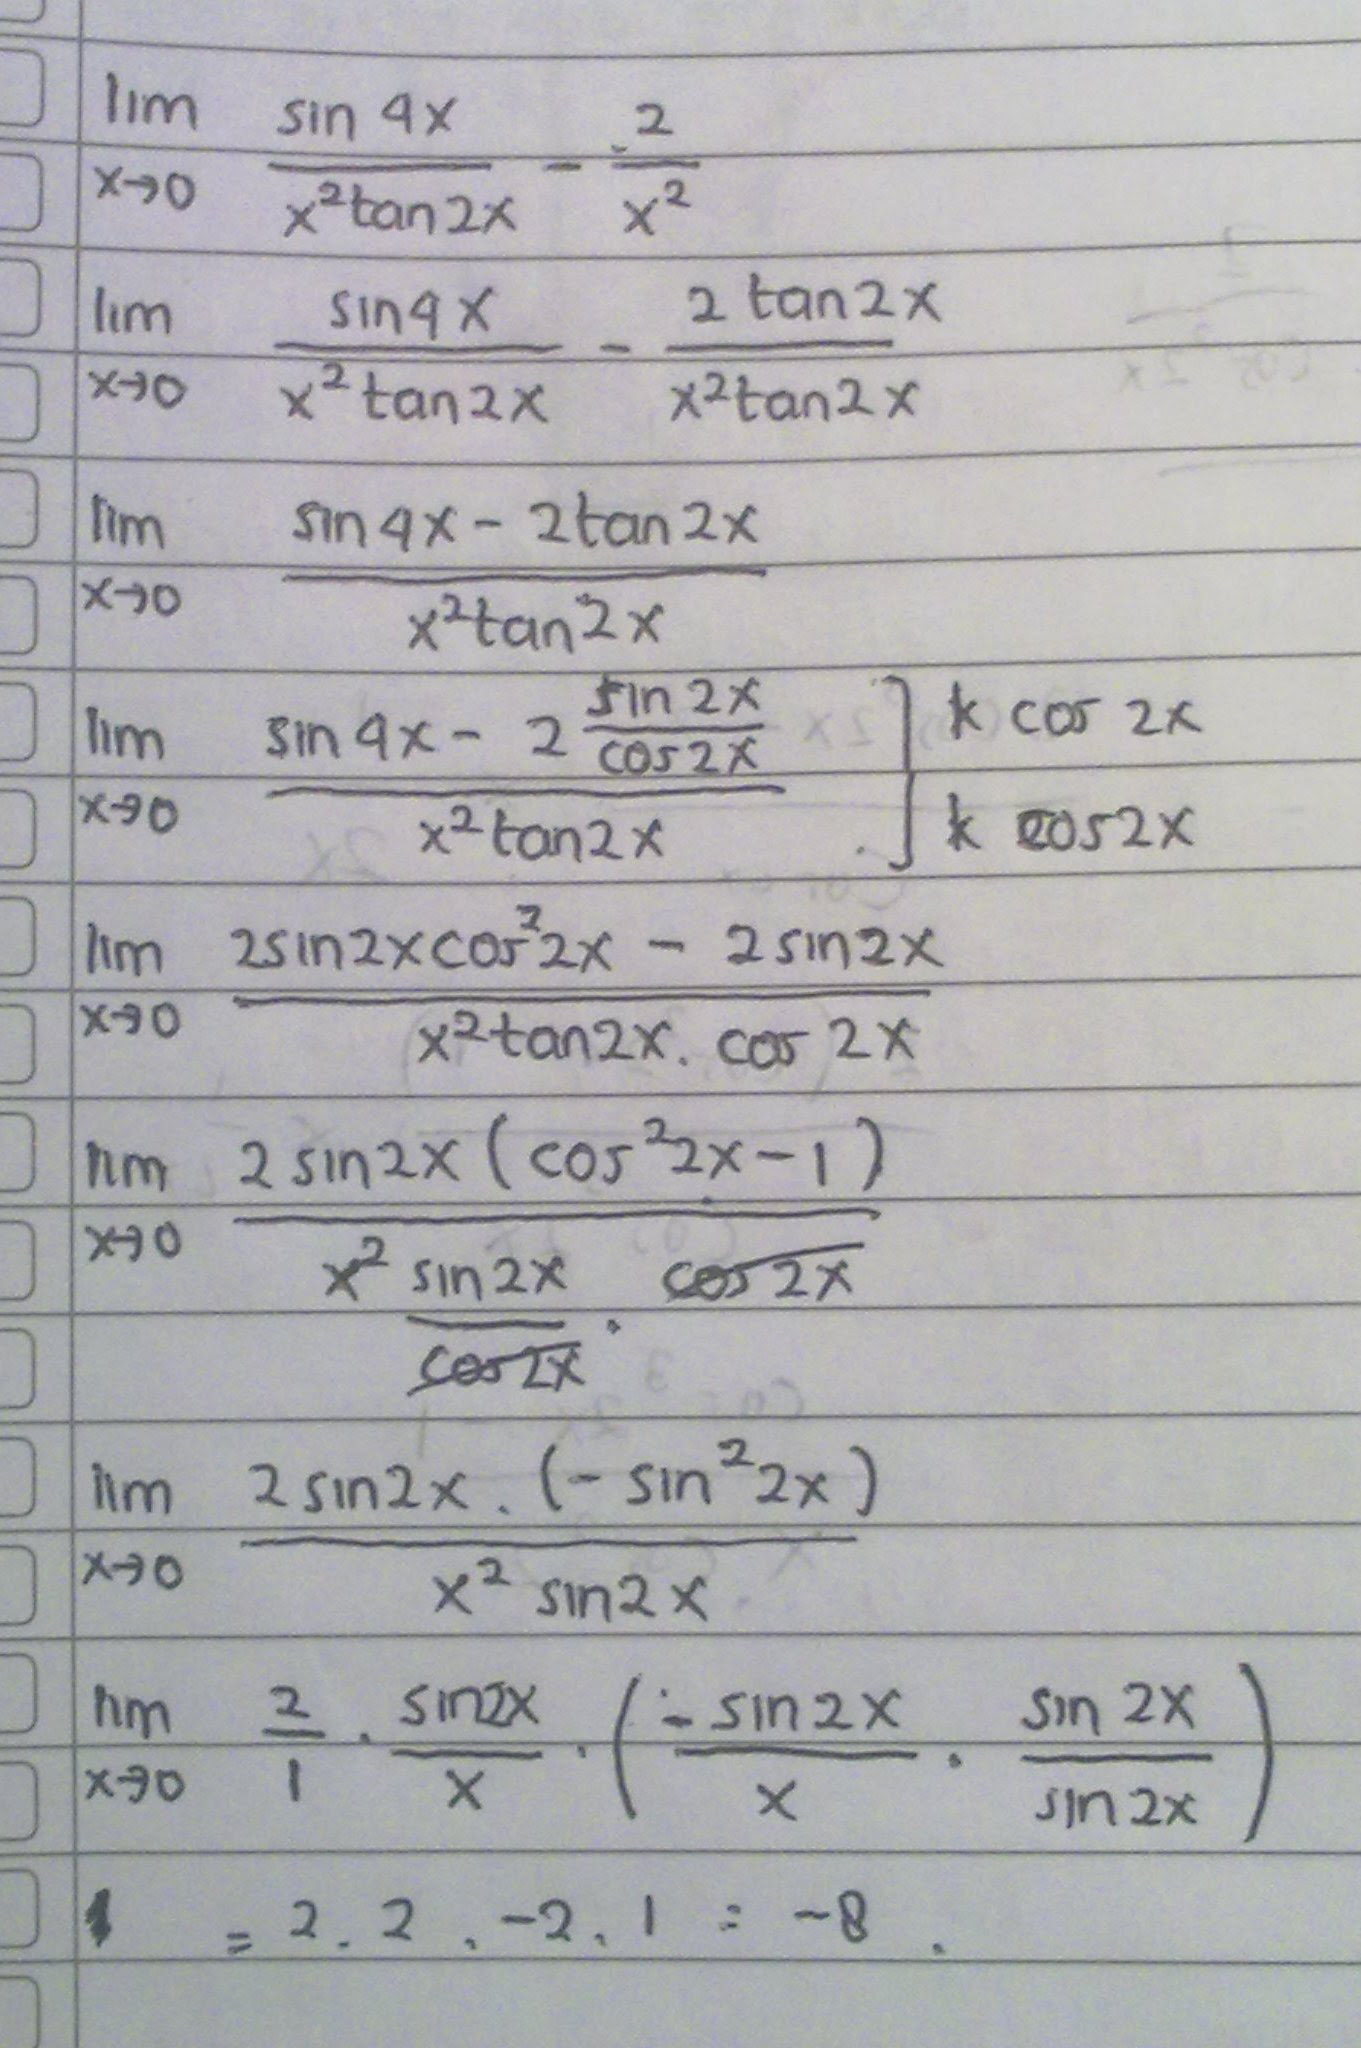 lim x→0 sin 4x / x² tan 2x - 2 / x²
lim x→0 sin 4x / x² tan 2x - 2 tan 2x / x² tan 2x
lim x→0 sin 4x - 2 tan 2x / x² tan 2x
lim x→0 sin 4x - 2 sin 2x / cos 2x / x² tan 2x ] k cos 2x k cos 2x
lim x→0 2 sin 2x cos² 2x - 2 sin 2x / x² tan 2x . cos 2x
lim x→0 2 sin 2x ( cos² 2x - 1 ) / x² sin 2x / cos 2x . cos 2x
lim x→0 2 sin 2x . (- sin² 2x ) / x² sin 2x
lim x→0 2 / 1 . sin 2x / x . ( - sin 2x / x . sin 2x / sin 2x )
= 2 . 2 . -2 . 1 = -8 .